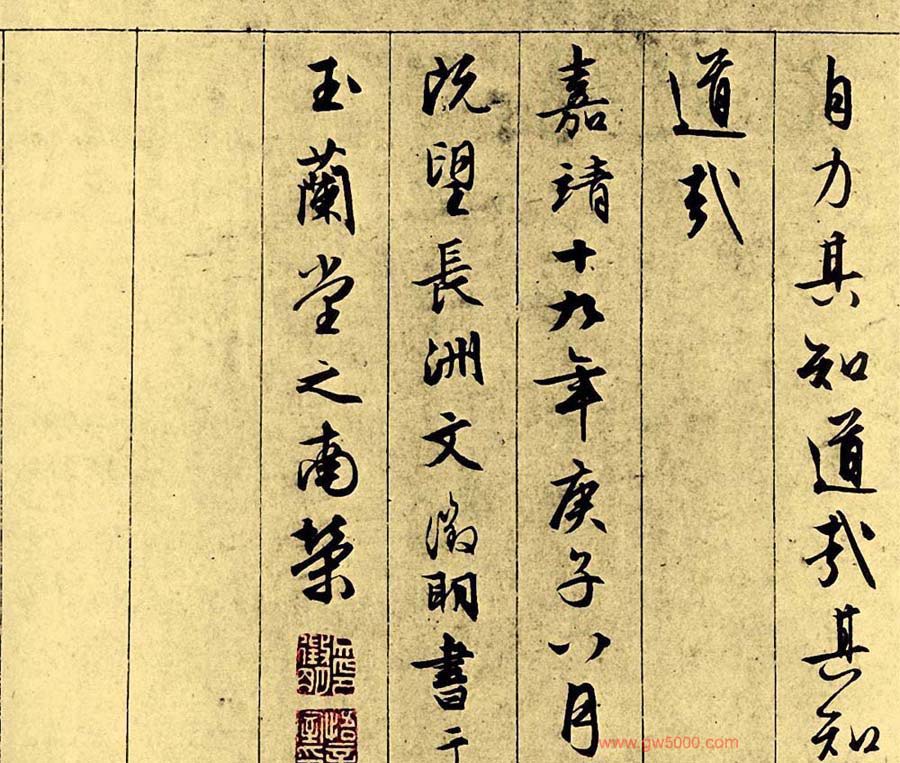 自力其知道哉其知
道哉
嘉靖十九年庚子八月
既望長洲文徵明書于
玉蘭堂之南榮
www.gw5000.com